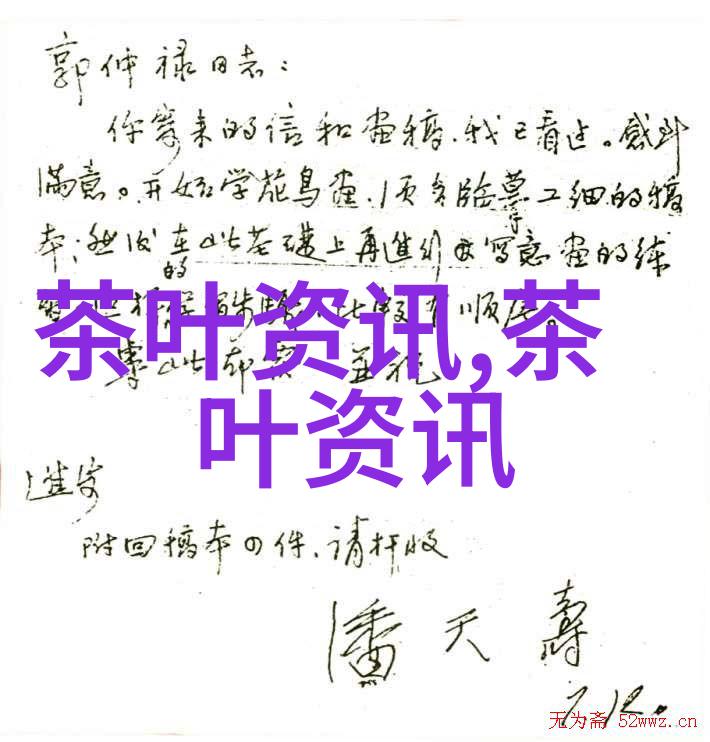 郭仲禄同志：
你寄来的信和画稿,我已看过。感到
满意。开始学花鸟画,须多临摹工细的稿
本;然后在此基础上再进行写意画的练
的 顺序。
茶叶资讯,茶
叶资讯
进安
附回稿本四件、请检收
潘天壽
7.12.
无为斋 52wwz.cn